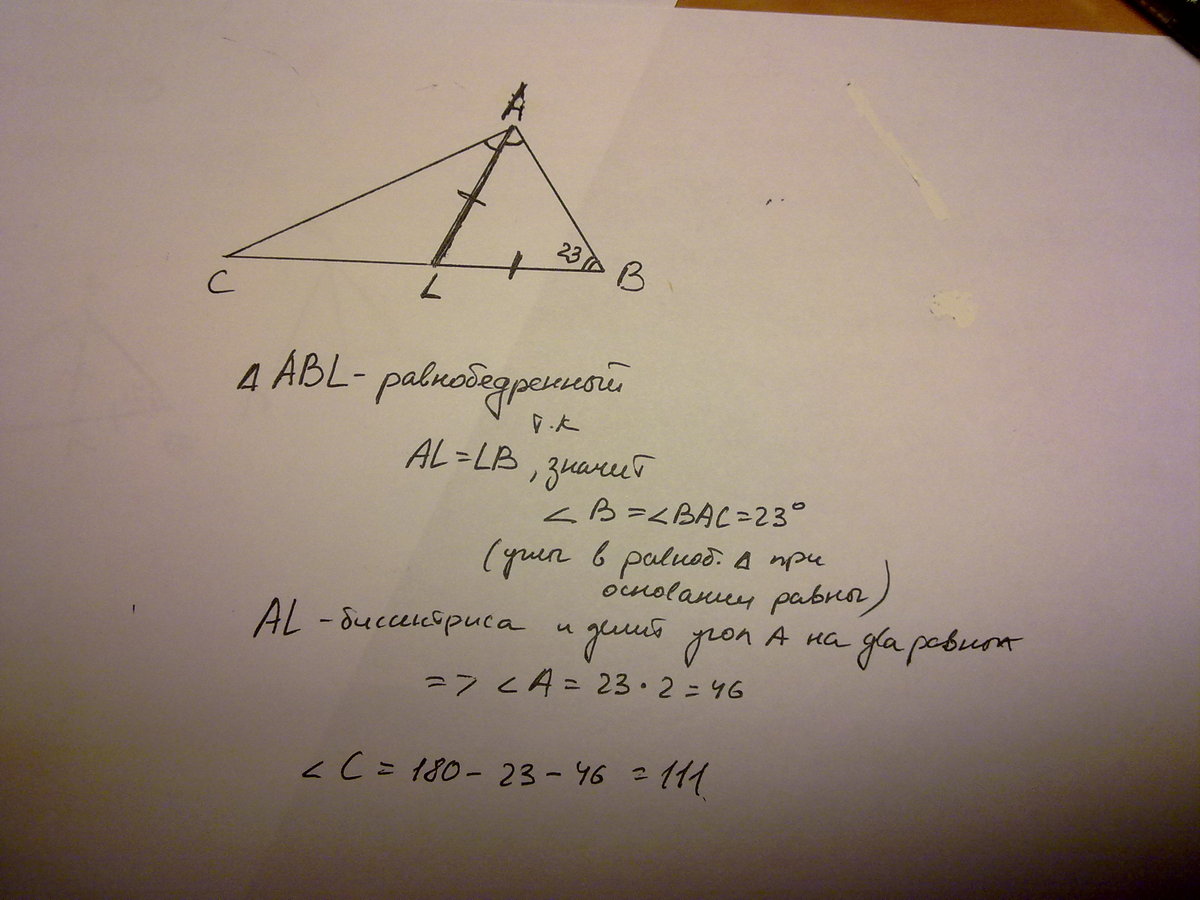 A
23
C
L
B
Δ ABL - равнобедренный
т.к
AL = LB , значит
∠ B = ∠BAC = 23°
(углы в равноб. Δ при
основании равны)
AL - биссектриса и делит угол A на два равных
=> ∠ A = 23 · 2 = 46
∠ C = 180 - 23 - 46 = 111